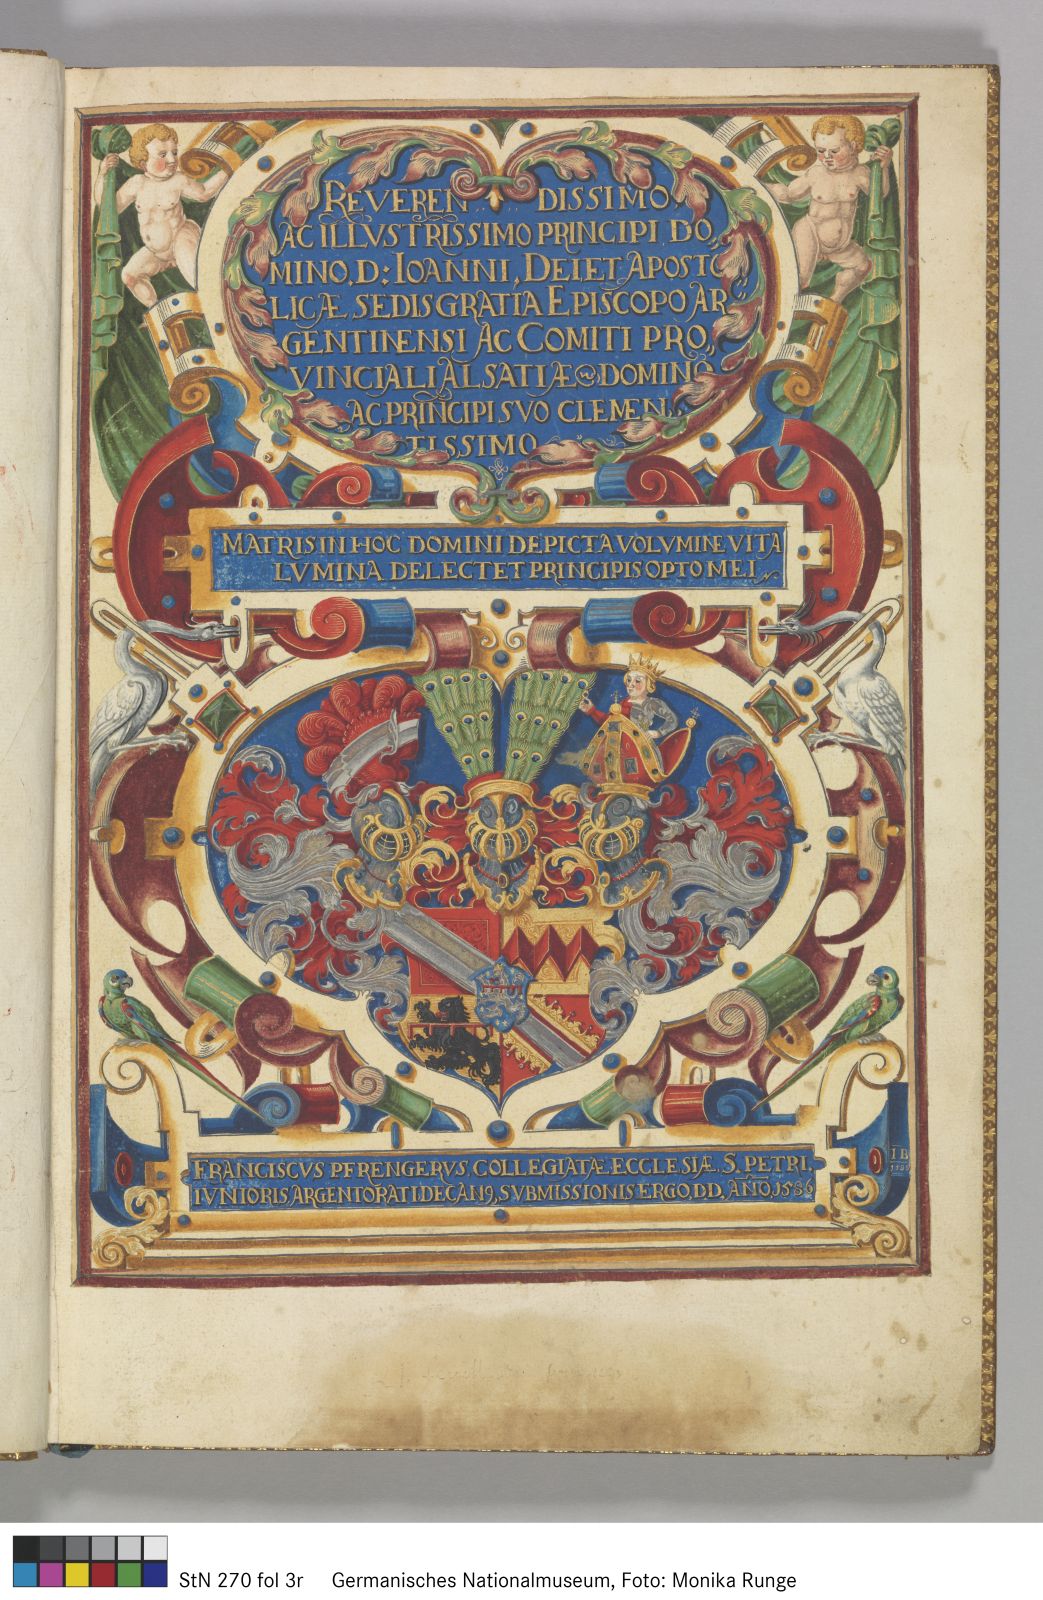 REVEREN DISSIMO
AC ILLVSTRISSIMO PRINCIPI DO,
MINO, D: IOANNI, DEI ET APOSTO
LICÆ SEDIS GRATIA EPISCOPO AR
GENTINENSI AC COMITI PRO,
VINCIALI ALSATIÆ DOMINO
AC PRINCIPI SVO CLEMEN
TISSIMO
MATRIS IN HOC DOMINI DEPICTA VOLVMINE VITA
LVMINA DELECTET PRINCIPIS OPTO MEI
FRANCISCVS PFRENGERVS COLLEGIATÆ ECCLESIÆ S. PETRI,
IVNIORIS, ARGENTORATI DECAN9, SVBMISSIONIS ERGO, DD, AÑO, 1586
IB
StN 270 fol 3r Germanisches Nationalmuseum, Foto: Monika Runge